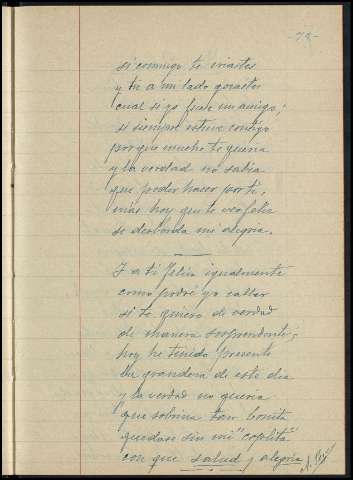 -78-
si conmigo te criastes
y tu a mi lado gozastes
cual si yo fuese un amigo;
si siempre estuve contigo
porque mucho te queria
y la verdad no sabia
que poder hacer por ti,
mas hoy que te veo feliz
se desborda mi alegria.
Y a ti Felisa igualmente
como podré yo callar
si te quiero de verdad
de manera sorprendente;
hoy he tenido presente
la grandeza de este dia
y la verdad no queria
que sobrina tan bonita
quedase sin mi "coplita"
con que salud y alegria